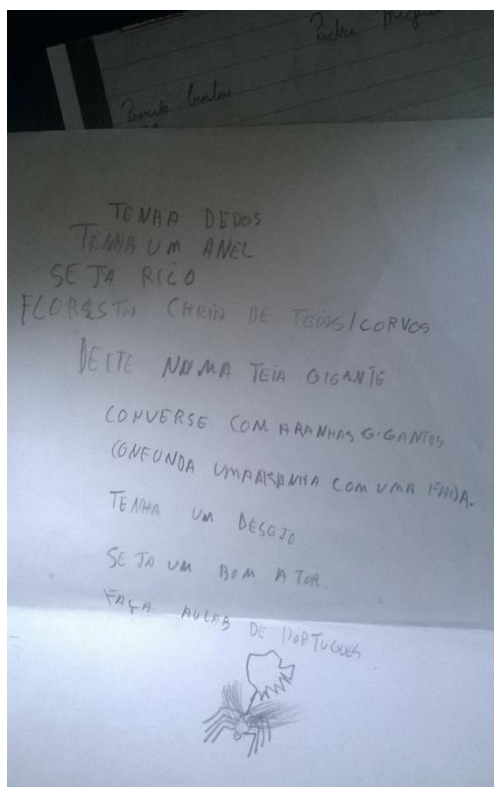 Padre
TENHA DEDOS
TENHA UM ANEL
SEJA RICO
FLORESTA CHEIA DE TEIAS/CORVOS
DEITE NUMA TEIA GIGANTE
CONVERSE COM ARANHAS GIGANTES
CONFUNDA UMA ARANHA COM UMA FADA.
TENHA UM DESEJO
SEJA UM BOM ATOR
FAÇA AULAS DE PORTUGUES